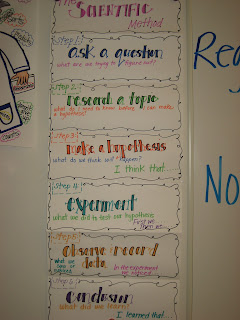 The
SCIENTIFIC
Method
Step 1:
ask a question
what are we trying to figure out?
Step 2:
research a topic
what do I need to know before I can make
a hypothesis?
Step 3:
make a hypothesis
what do we think will happen?
I think that...
Step 4:
experiment
what will we do to test our hypothesis
First we
Then we
Step 5:
Observe record
data
what we
In the experiment
we
Step 6:
Conclusion
what did we learn?
I learned that...
Rea
No